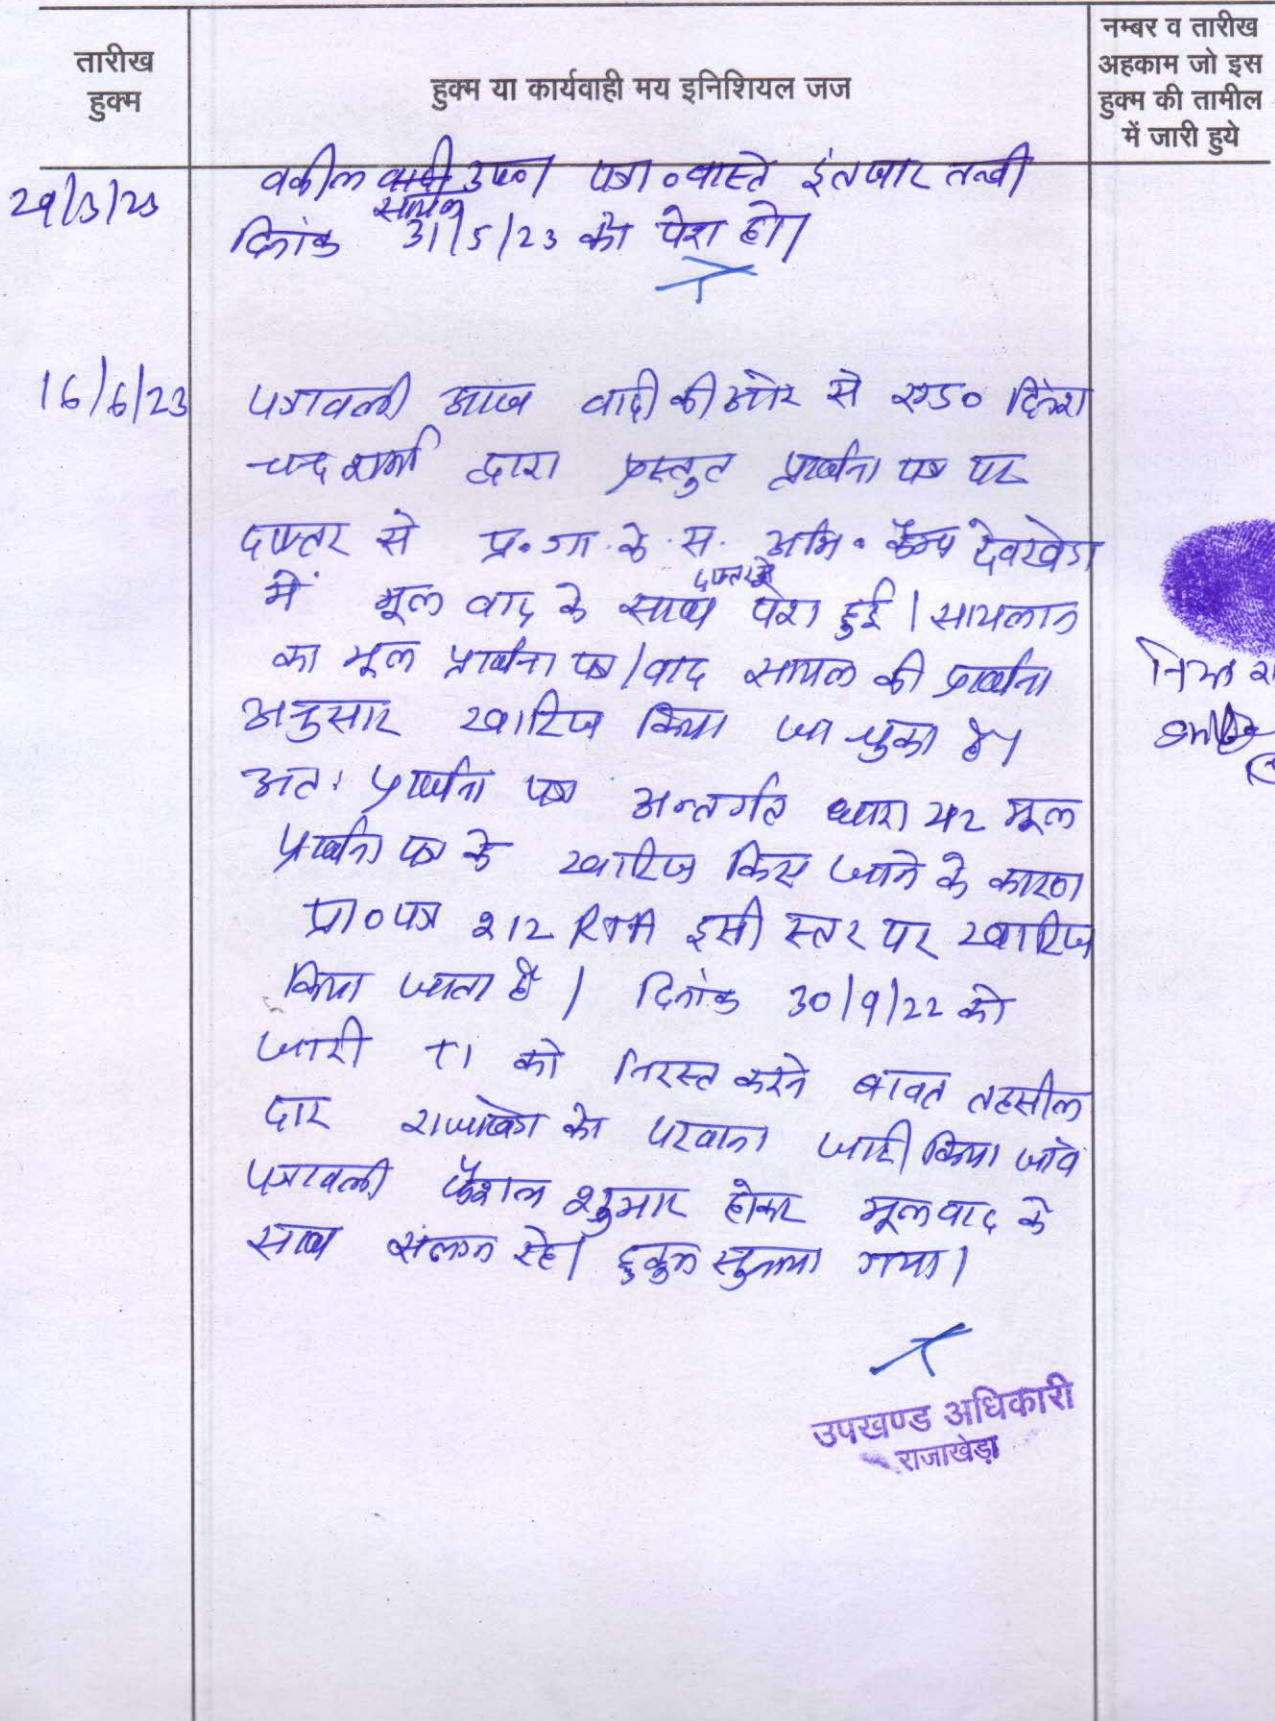 तारीख
हुक्म
हुक्म या कार्यवाही मय इनिशियल जज
नम्बर व तारीख
अहकाम जो इस
हुक्म की तामील
में जारी हुये
29/3/23
वकील सायल उप०। पत्रा० वास्ते इंतजार तलबी
दिनांक 31/5/23 को पेश हो।
16/6/23
पत्रावली आज वादी की ओर से एड० दिनेश
चन्द शर्मा द्वारा प्रस्तुत प्रार्थना पत्र पर
दफ्तर से प्र. गा. के. स. अभि. कैम्प देवखेडा
में मूल वाद के साथ दफ्तर से पेश हुई। सायलान
का मूल प्रार्थना पत्र/वाद सायल की प्रार्थना
अनुसार खारिज किया जा चुका है।
अतः प्रार्थना पत्र अन्तर्गत धारा 212 मूल
प्रार्थना पत्र के खारिज किए जाने के कारण
प्रा०पत्र 212 RTA इसी स्तर पर खारिज
किया जाता है। दिनांक 30/9/22 को
जारी TI को निरस्त करने बावत तहसील
दार राजाखेडा को परवाना जारी किया जावे
पत्रावली फैशल शुमार होकर मूल वाद के
साथ संलग्न रहे। हुकुम सुनाया गया।
उपखण्ड अधिकारी
राजाखेड़ा